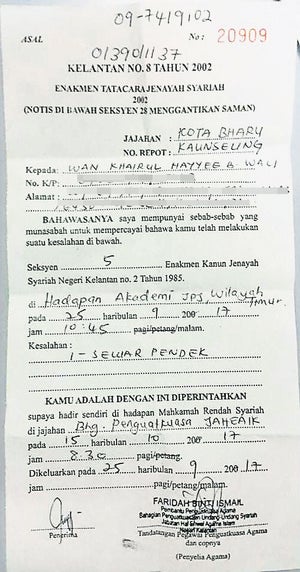 09-7419102
ASAL No: 20909
0139011137
KELANTAN NO. 8 TAHUN 2002
ENAKMEN TATACARA JENAYAH SYARIAH
2002
(NOTIS DI BAWAH SEKSYEN 28 MENGGANTIKAN SAMAN)
JAJAHAN : KOTA BHARU
NO. REPOT : KAUNSELING
Kepada: WAN KHAIRUL HAYYEE B. WALI
No. K/P:
Alamat :
BAHAWASANYA saya mempunyai sebab-sebab yang
munasabah untuk mempercayai bahawa kamu telah melakukan
suatu kesalahan di bawah.
Seksyen 5 Enakmen Kanun Jenayah
Syariah Negeri Kelantan no. 2 Tahun 1985.
di Hadapan Akademi JPS, Wilayah Timur.
pada 25 haribulan 9 200 17
jam 10:45 pagi/petang/malam.
Kesalahan :
1 - SELUAR PENDEK
KAMU ADALAH DENGAN INI DIPERINTAHKAN
supaya hadir sendiri di hadapan Mahkamah Rendah Syariah
di jajahan Bhg. Penguatkuasa JAHEAIK
pada 15 haribulan 10 200 17
jam 8.30 pagi/petang.
Dikeluarkan pada 25 haribulan 9 200 17
jam pagi/petang/malam.
Penerima
FARIDAH BINTI ISMAIL
Pembantu Penguatkuasa Agama
Bahagian Penguatkuasaan Undang-Undang Syariah
Jabatan Hal Ehwal Agama Islam
Negeri Kelantan
Tandatangan Pegawai Penguatkuasa Agama
dan copnya
(Penyelia Agama)